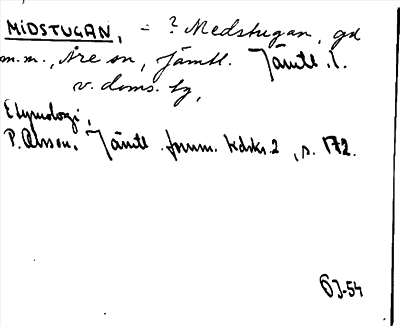 MIDSTUGAN, = ? Medstugan, gd
m.m., Åre sn, Jämtl. Jämtl. l.
v. doms. hg,
Etymologi,
P. Olsson, Jämtl. fornm. tidskr. 2, s. 172.
OJ-54